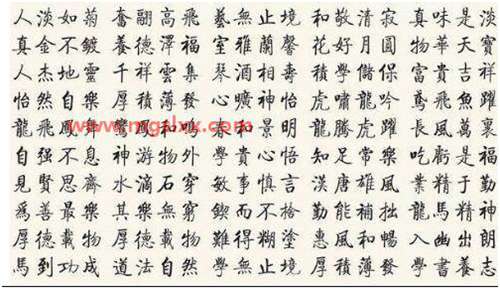 人淡如菊 奮翮高飛 藝無止境 和敬清寂 真味是淡
真金不鍍 養德澤福 室雅蘭馨 花好月圓 物華天寶
人杰地靈 千祥雲集 琴酒相壽 學儲保 富貴吉祥
怡然自樂 厚積薄發 心曠神怡 虎嘯龍吟 鳶飛魚躍
龍飛鳳舞 鸞鳳和鳴 和景明 龍騰虎躍 長風萬裏
www.mgalxx.com
自强不息 神游物外 學貴心悟 知足常樂 吃虧是福
見賢思齊 水滴石穿 敏事慎言 漢唐雄風 業精于勤
爲善最樂 其樂無窮 鍥而不捨 勤能補拙 龍馬精神
厚德載物 厚德載物 難得糊塗 惠風和暢 入幽出朗
馬到功成 道法自然 學無止境 厚積薄發 學書養志